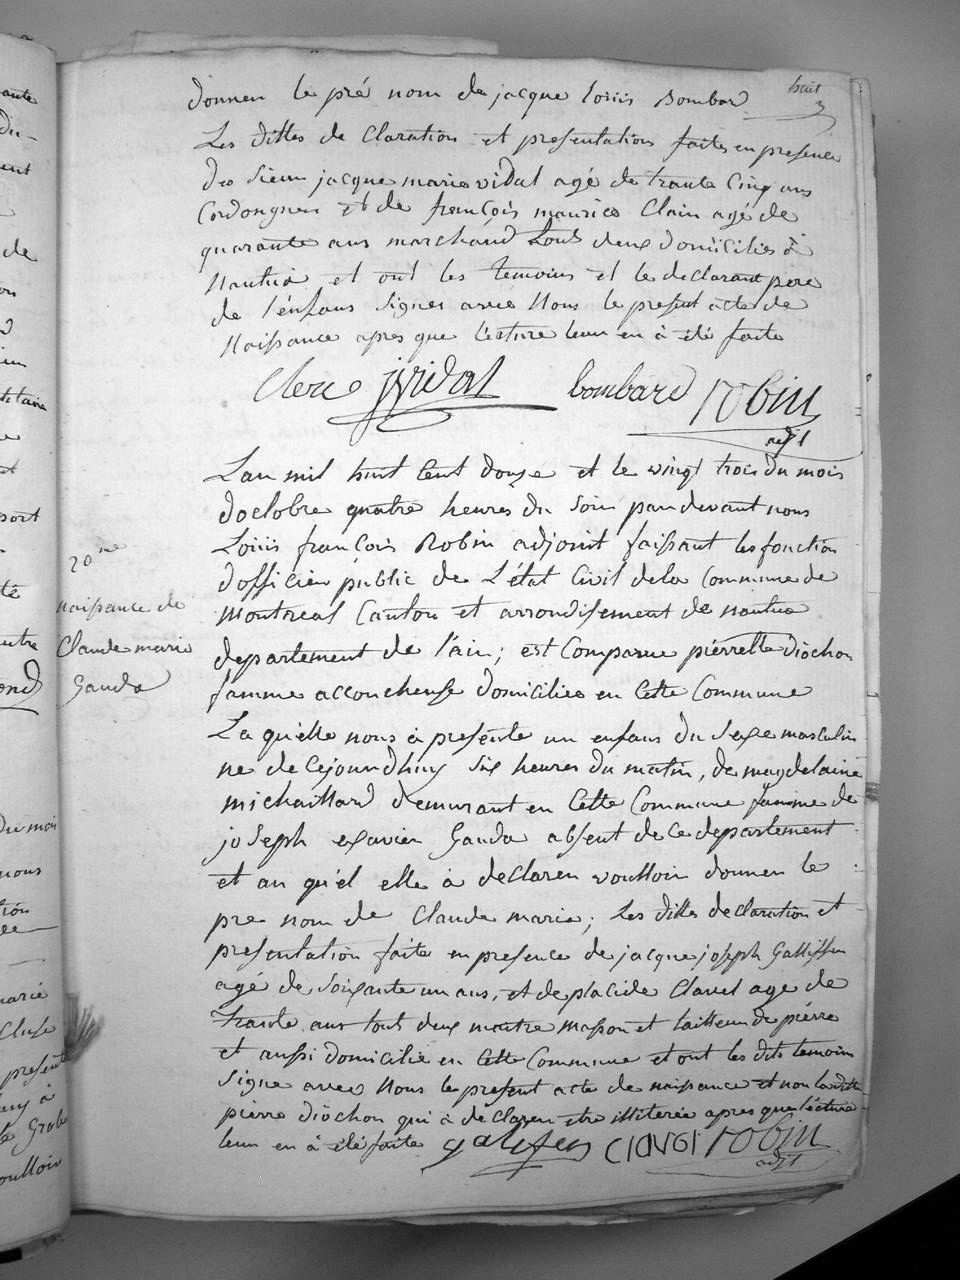 huit
donner le pré nom de jacque loüis Bombar
Les dittes de Claration et presentations faites en presence
du Sieur jacque marie vidal agé de trante Cinq ans
Cordongner et de françois maurice Clair agé de
quarante ans marchand touts deux domiciliés à
Nantua et ont les temoins et le declarant pere
de l'enfans Signes avec Nous le present acte de
Naissance apres que lecture leur en à été faite
Clerc jvidal bombard robin
adjt
Lan mil huit Cent douze et le vingt trois du mois
doctobre quatre heures du Soir par devant nous
Loüis françois Robin adjoint faissant les fonction
d'officier public de L'état Civil de la Commune de
Montreal Canton et arrondisement de nantua
departement de l'ain; est Comparue pierrette diochon
famme accoucheuse domiciliee en Cette Commune
La quelle nous à presente un enfans du Sexe masculin
ne de Cejourdhuy Six heures du matin, de magdelaine
michaillard demurant en Cette Commune famme de
joSeph exavier Gauda absent de Ce departement
et au qu'el elle à declarer voulloir donner le
pre nom de Claude marie; Les dittes declaration et
presentation faite en presence de jacque joseph Galliffen
agé de Soixante un ans, et de placide Clavel age de
trante ans tout deux maitre masson et tailleur de pierre
et aussi domicilie en Cette Commune et ont les dits temoin
Signe avec Nous le present acte de naissance et non la ditte
pierre diochon qui à declarer etre illiterée apres que lecture
leur en à été faite galifen clavel robin
adjt
20me
naissance de
Claude marie
Gauda